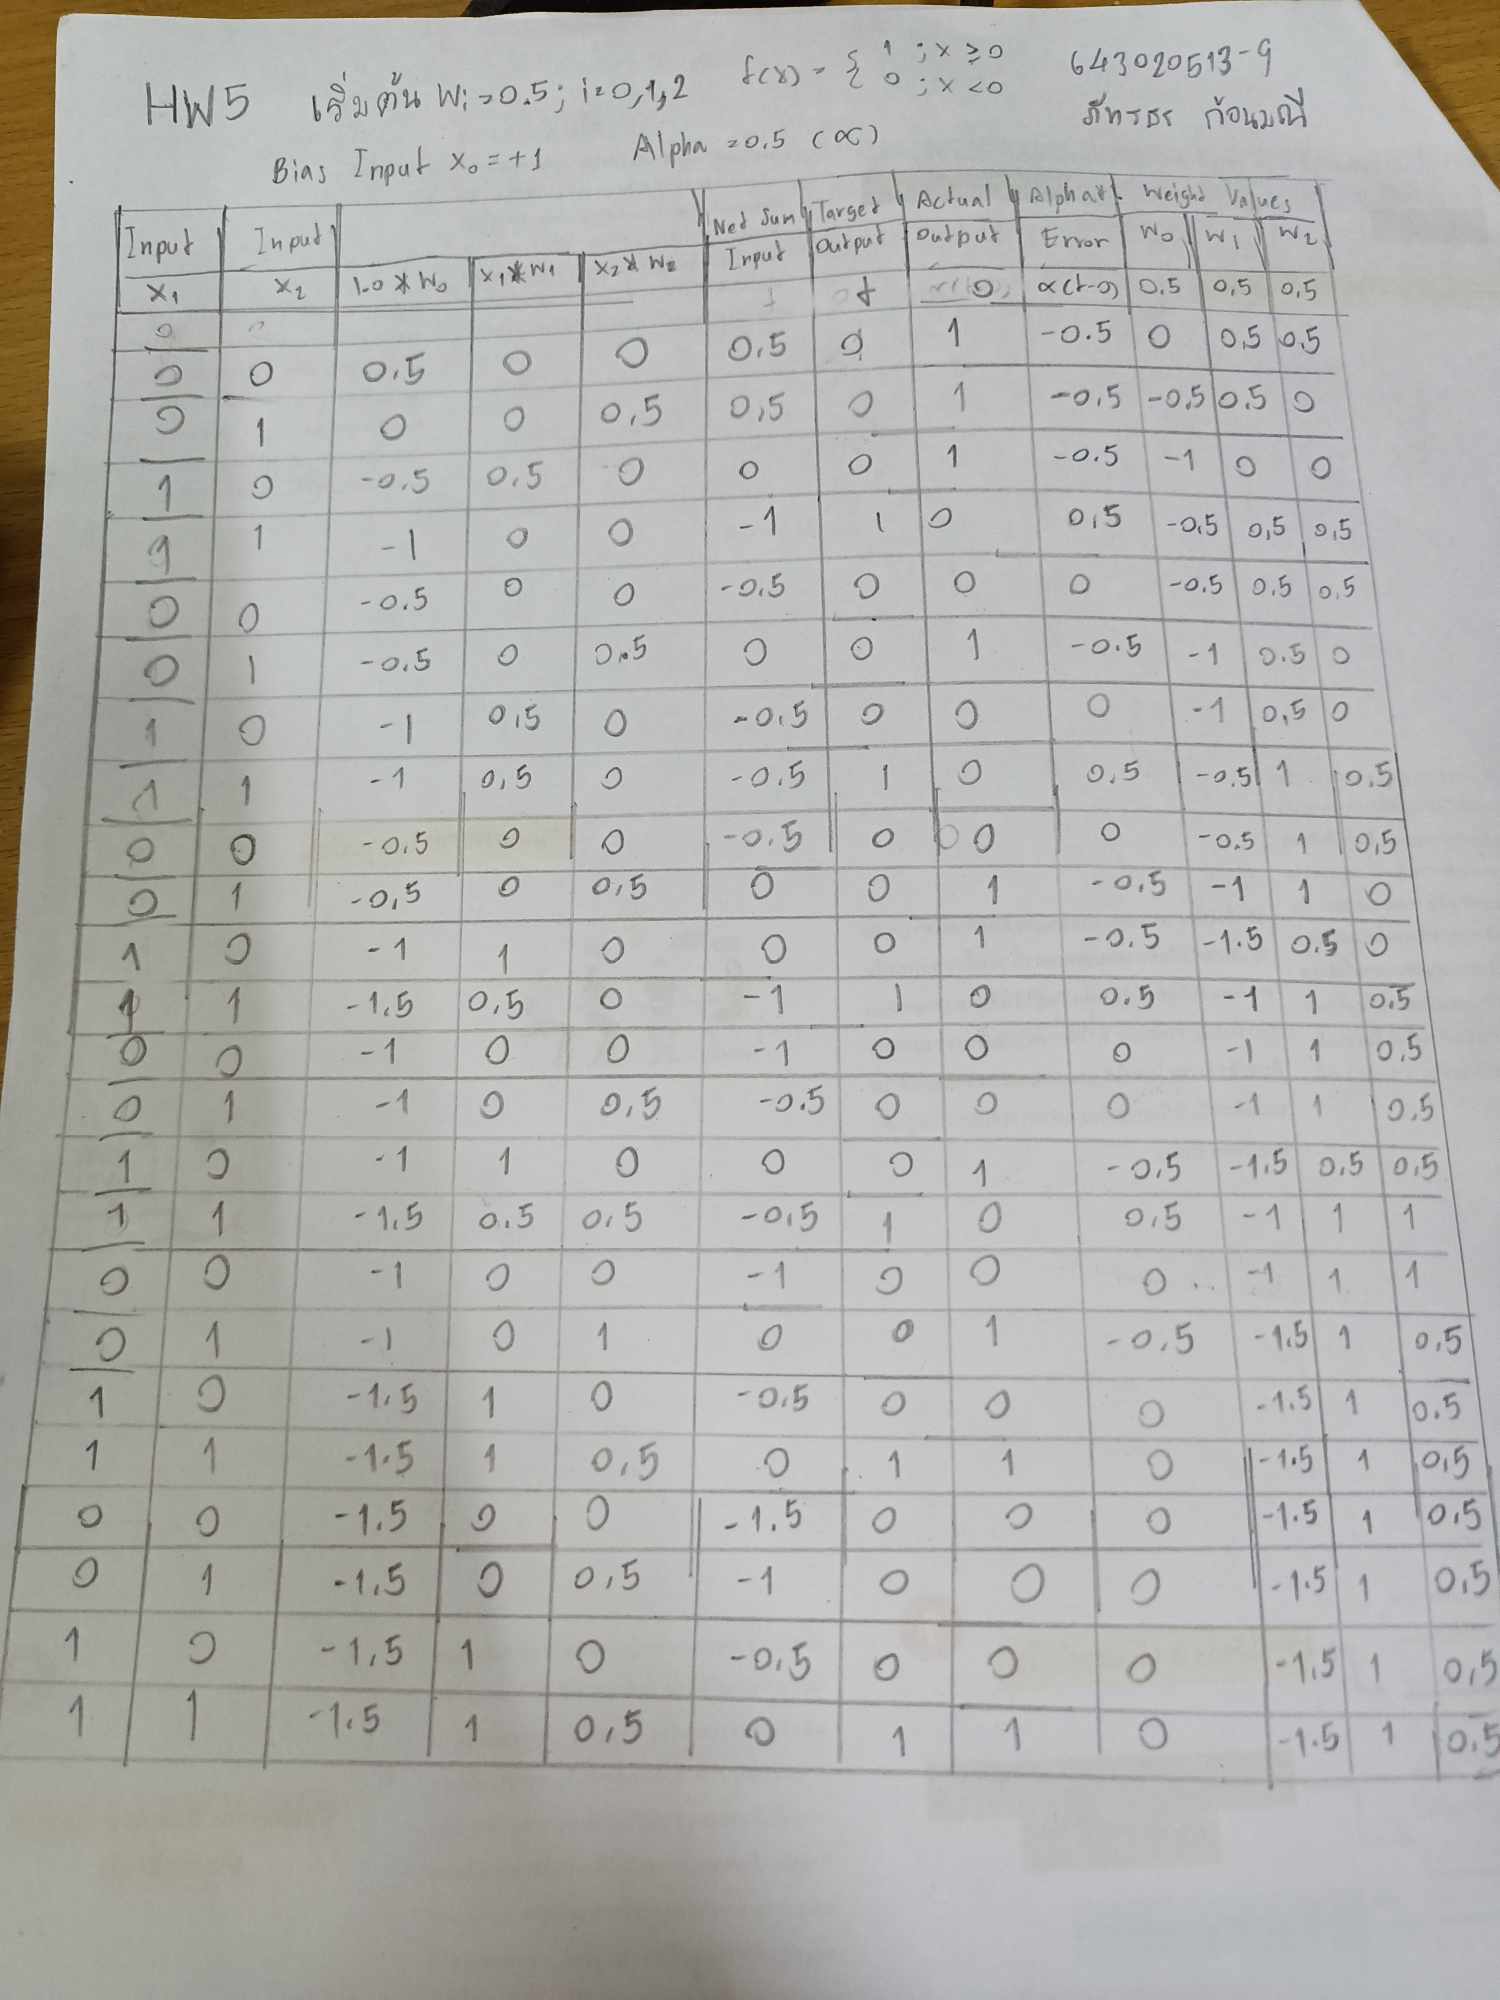 HW5 เริ่มต้น Wi=0.5; i=0,1,2 f(x) = { 1 ; x ≥ 0 643020513-9
0 ; x < 0 ภัทรธร ก้อนมณี
Bias Input x₀ = +1 Alpha = 0.5 (α)
Net Sum Target Actual Alpha* Weight Values
Input Input Input Output Output Error W0 W1 W2
x1 x2 1.0*W0 x1*W1 x2*W2 t o α(t-o) 0.5 0.5 0.5
0 0 0.5 0 0 0.5 0 1 -0.5 0 0.5 0.5
0 1 0 0 0.5 0.5 0 1 -0.5 -0.5 0.5 0
1 0 -0.5 0.5 0 0 0 1 -0.5 -1 0 0
1 1 -1 0 0 -1 1 0 0.5 -0.5 0.5 0.5
0 0 -0.5 0 0 -0.5 0 0 0 -0.5 0.5 0.5
0 1 -0.5 0 0.5 0 0 1 -0.5 -1 0.5 0
1 0 -1 0.5 0 -0.5 0 0 0 -1 0.5 0
1 1 -1 0.5 0 -0.5 1 0 0.5 -0.5 1 0.5
0 0 -0.5 0 0 -0.5 0 0 0 -0.5 1 0.5
0 1 -0.5 0 0.5 0 0 1 -0.5 -1 1 0
1 0 -1 1 0 0 0 1 -0.5 -1.5 0.5 0
1 1 -1.5 0.5 0 -1 1 0 0.5 -1 1 0.5
0 0 -1 0 0 -1 0 0 0 -1 1 0.5
0 1 -1 0 0.5 -0.5 0 0 0 -1 1 0.5
1 0 -1 1 0 0 0 1 -0.5 -1.5 0.5 0.5
1 1 -1.5 0.5 0.5 -0.5 1 0 0.5 -1 1 1
0 0 -1 0 0 -1 0 0 0 -1 1 1
0 1 -1 0 1 0 0 1 -0.5 -1.5 1 0.5
1 0 -1.5 1 0 -0.5 0 0 0 -1.5 1 0.5
1 1 -1.5 1 0.5 0 1 1 0 -1.5 1 0.5
0 0 -1.5 0 0 -1.5 0 0 0 -1.5 1 0.5
0 1 -1.5 0 0.5 -1 0 0 0 -1.5 1 0.5
1 0 -1.5 1 0 -0.5 0 0 0 -1.5 1 0.5
1 1 -1.5 1 0.5 0 1 1 0 -1.5 1 0.5